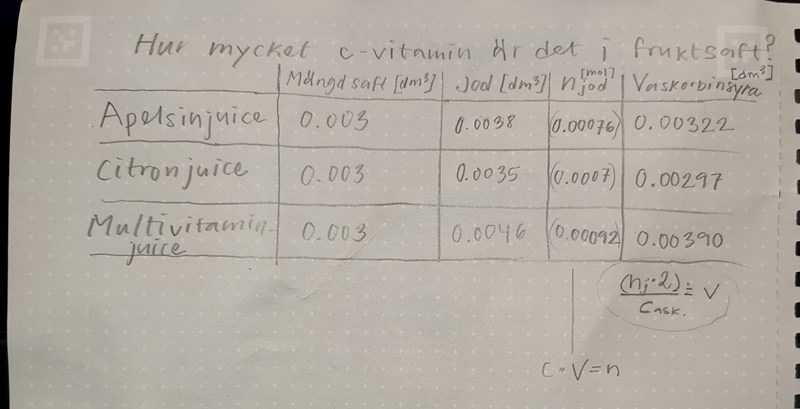 Hur mycket c-vitamin är det i fruktsaft?
Mängd saft [dm³] Jod [dm³] n jod [mol] Vaskorbinsyra [dm³]
Apelsinjuice 0.003 0.0038 (0.00076) 0.00322
Citronjuice 0.003 0.0035 (0.0007) 0.00297
Multivitamin- 0.003 0.0046 (0.00092) 0.00390
juice
(nj·2) = V
Cask.
C·V=n